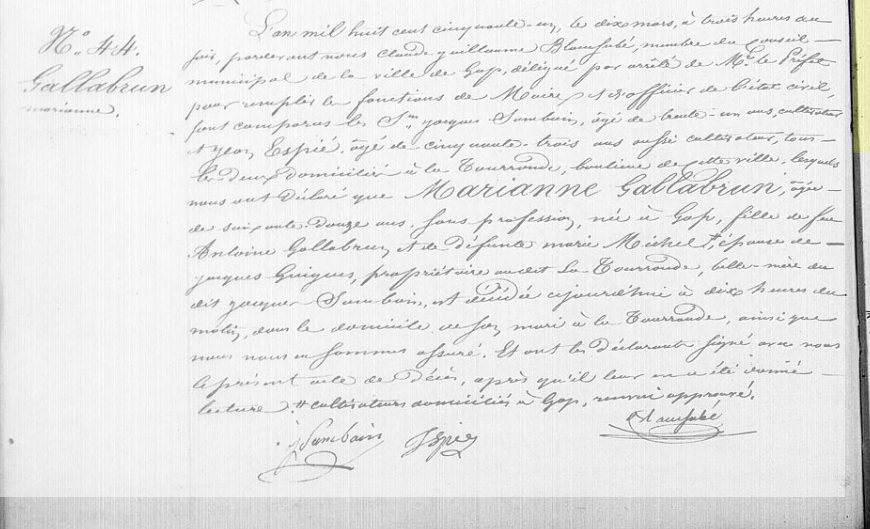 N.o 44.
Gallabrun
marianne.
L'an mil huit cent cinquante-un, le dix mars, à trois heures du
soir, pardevant nous Claude guillaume Blanfubé, membre du Conseil
municipal de la ville de Gap, délégué par arrêté de Mr. le Préfet
pour remplir les fonctions de Maire et d'officier de l'état civil,
sont comparus les Srs jacques Sambain, âgé de trente-un ans, cultivateur
et jean Espié, âgé de cinquante-trois ans aussi cultivateur, tous
les deux domiciliés à la Tourronde, banlieue de cette ville, lesquels
nous ont déclaré que Marianne Gallabrun, âgée
de soixante-douze ans, sans profession, née à Gap, fille de feu
Antoine Gallabrun et de défunte marie Michel #, épouse de
jacques Guigues, propriétaire audit La Tourronde, belle-mère du
dit jacques Sambain, est décédée aujourd'hui à dix heures du
matin, dans le domicile de son mari à la Tourronde, ainsi que
nous nous en sommes assuré. Et ont les déclarants signé avec nous
le présent acte de Décès, après qu'il leur en a été donné
lecture. # cultivateurs domiciliés à Gap, renvoi approuvé.
j Sambain Espié